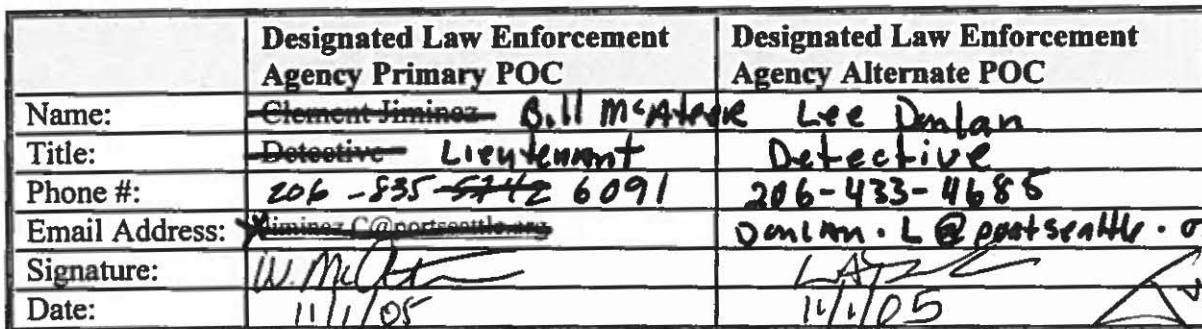 Designated Law Enforcement Agency Primary POC
Designated Law Enforcement Agency Alternate POC
Name: Clement Jiminez Bill McAteere Lee Donlan
Title: Detective Lieutenant Detective
Phone #: 206-835-5742 6091 206-433-4685
Email Address: Jiminez.C@portseattle.org Donlan.L@portseattle.o
Signature:
Date: 11/1/05 11/1/05